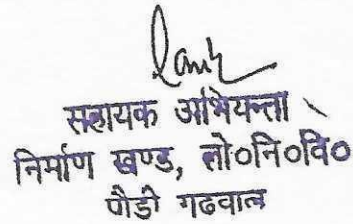 सहायक अभियन्ता
निर्माण खण्ड, लो०नि०वि०
पौडी गढवाल